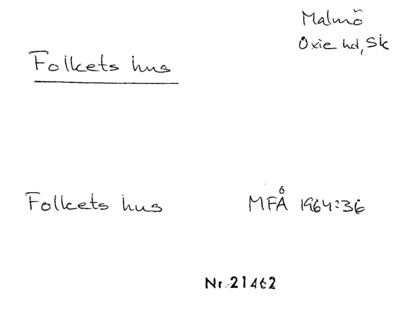 Malmö
Oxie hd, Sk
Folkets hus
Folkets hus MFÅ 1964:36
Nr 21462